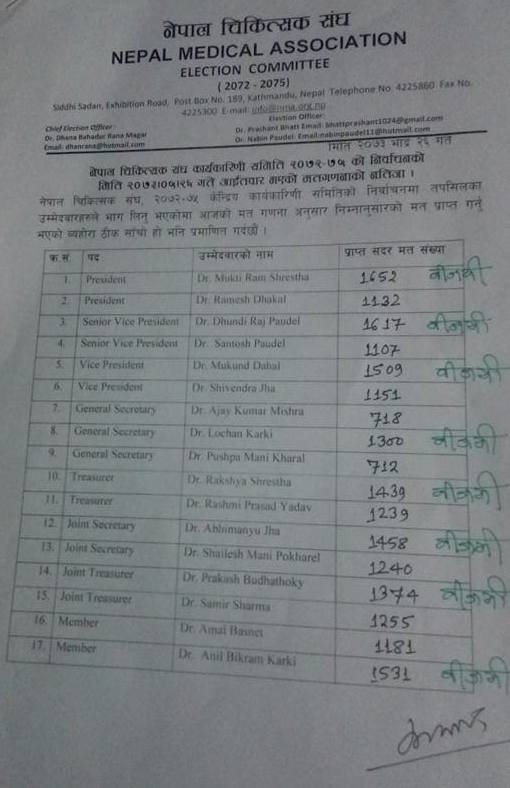 नेपाल चिकित्सक संघ
NEPAL MEDICAL ASSOCIATION
ELECTION COMMITTEE
( 2072 - 2075)
Siddhi Sadan, Exhibition Road, Post Box No. 189, Kathmandu, Nepal Telephone No. 4225860 Fax No.
4225300 E-mail: info@nma.org.np
Chief Election Officer:
Dr. Dhana Bahadur Rana Magar
Email: dhanrana@hotmail.com
Election Officer:
Dr. Prashant Bhatt Email: bhattprashant1024@gmail.com
Dr. Nabin Paudel: Email:nabinpaudel11@hotmail.com
मिति २०७२ भाद्र २६ गते
नेपाल चिकित्सक संघ कार्यकारिणी समिति २०७२-७५ को निर्वाचनको
मिति २०७२।०५।२६ गते आईतवार भएको मतगणनाको नतिजा ।
नेपाल चिकित्सक संघ, २०७२-७५ केन्द्रिय कार्यकारिणी समितिको निर्वाचनमा तपसिलका
उम्मेदवारहरुले भाग लिनु भएकोमा आजको मत गणना अनुसार निम्नानुसारको मत प्राप्त गर्नु
भएको व्यहोरा ठीक साँचो हो भनि प्रमाणित गर्दछौं ।
क्र.सं पद उम्मेदवारको नाम प्राप्त सदर मत संख्या
1. President Dr. Mukti Ram Shrestha 1652 बीजयी
2. President Dr. Ramesh Dhakal 1132
3. Senior Vice President Dr. Dhundi Raj Paudel 1617 बीजयी
4. Senior Vice President Dr. Santosh Paudel 1107
5. Vice President Dr. Mukund Dahal 1509 बीजयी
6. Vice President Dr. Shivendra Jha 1151
7. General Secretary Dr. Ajay Kumar Mishra 718
8. General Secretary Dr. Lochan Karki 1300 बीजयी
9. General Secretary Dr. Pushpa Mani Kharal 712
10. Treasurer Dr. Rakshya Shrestha 1439 बीजयी
11. Treasurer Dr. Rashmi Prasad Yadav 1239
12. Joint Secretary Dr. Abhimanyu Jha 1458 बीजयी
13. Joint Secretary Dr. Shailesh Mani Pokharel 1240
14. Joint Treasurer Dr. Prakash Budhathoky 1374 बीजयी
15. Joint Treasurer Dr. Samir Sharma 1255
16. Member Dr. Amal Basnet 1181
17. Member Dr. Anil Bikram Karki 1531 बीजयी